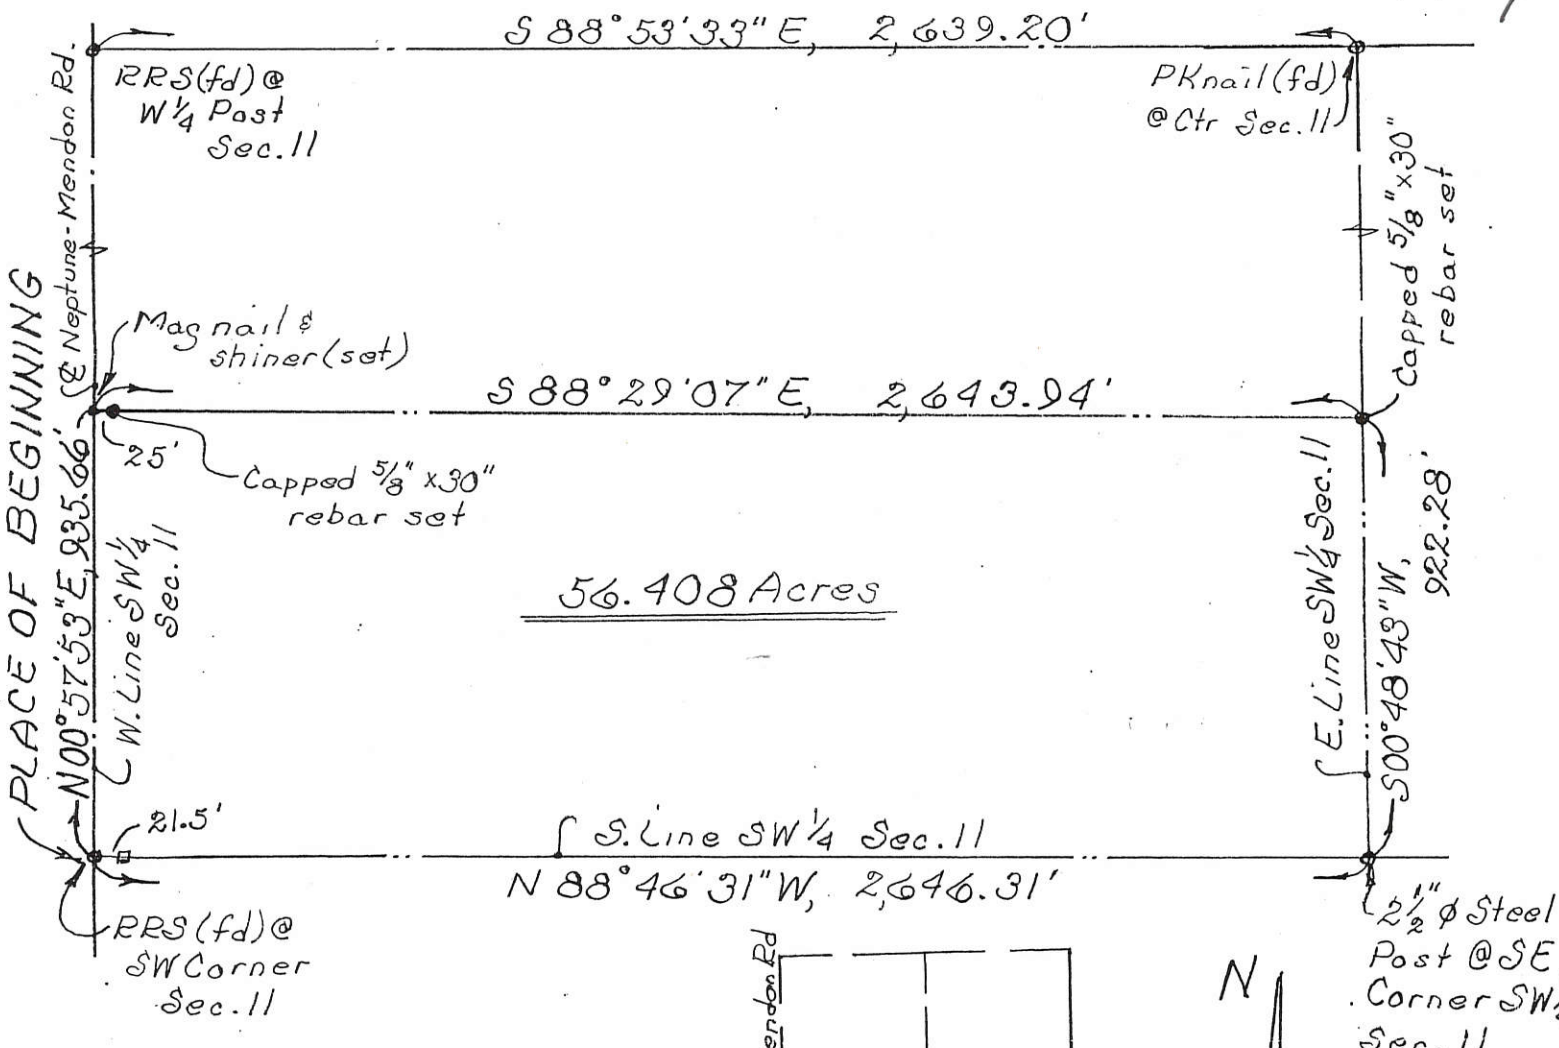 S 88° 53' 33" E, 2,639.20'
RRS(fd) @
W 1/4 Post
Sec. 11
PKnail(fd)
@ Ctr Sec. 11
℄ Neptune-Mendon Rd.
Capped 5/8" x 30"
rebar set
Mag nail &
shiner (set)
S 88° 29' 07" E, 2,643.94'
25'
Capped 5/8" x 30"
rebar set
PLACE OF BEGINNING
N 00° 57' 53" E, 935.66'
W. Line SW 1/4
Sec. 11
56.408 Acres
E. Line SW 1/4 Sec. 11
S 00° 48' 43" W,
922.28'
21.5'
S. Line SW 1/4 Sec. 11
N 88° 46' 31" W, 2,646.31'
RRS (fd) @
SW Corner
Sec. 11
2 1/2" ϕ Steel
Post @ SE
Corner SW
Sec. 11
endon Rd
N